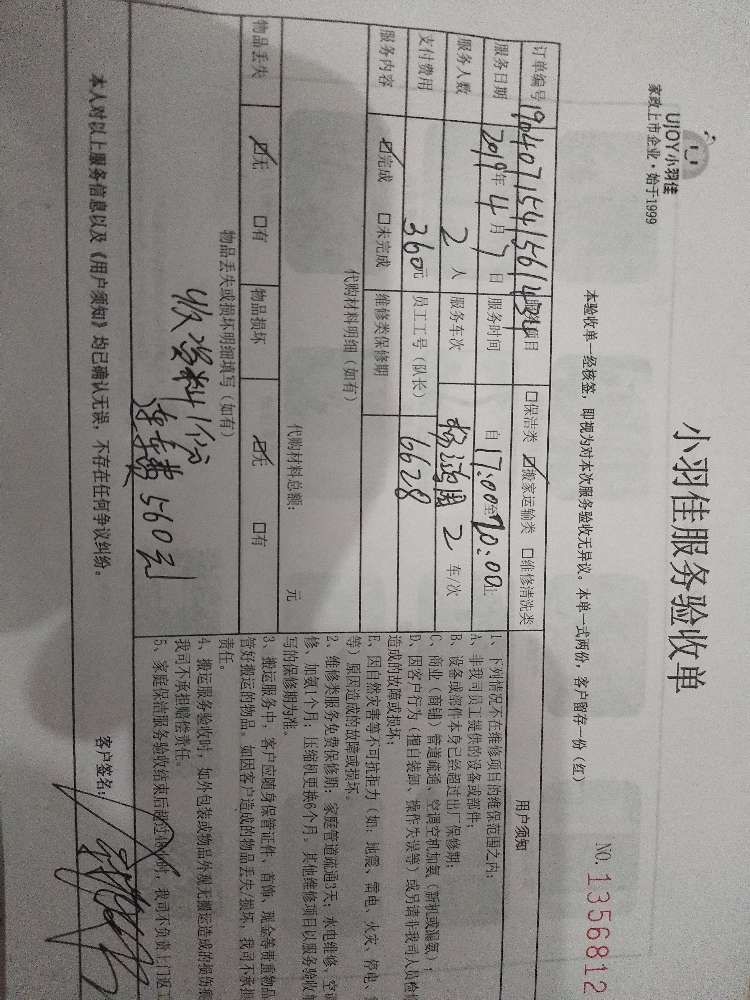 UJOY小羽佳
家政上市企业·始于1999
小羽佳服务验收单
NO. 1356812
本验收单一经核签，即视为对本次服务验收无异议。本单一式两份，客户留存一份（红）
订单编号 190407154156143 项目 □保洁类 ☑搬家运输类 □维修清洗类
服务日期 2019年4月7日 服务时间 自17:00至20:00止
服务人数 2人 服务车次 2车/次
支付费用 360元 员工工号（队长） 6628
服务内容 ☑完成 □未完成 维修类保修期
代购材料明细（如有）
代购材料总额： 元
物品丢失 ☑无 □有 物品损坏 ☑无 □有
物品丢失或损坏明细填写（如有）
收资料1份
连车费560元
用户须知
1、下列情况不在维修项目的维保范围之内：
A、非我司员工提供的设备或部件；
B、设备或部件本身已经超过出厂保修期；
C、商业（商铺）管道疏通、空调空机加氨（新机或漏氨）；
D、因客户行为（擅自装卸、操作失误等）或另请非我司人员检修
造成的故障或损坏；
E、因自然灾害等不可抗拒力（如：地震、雷电、火灾、停电、
等）原因造成的故障或损坏。
2、维修类服务免费保修期：家庭管道疏通3天；水电维修、空调
修、加氨1个月，压缩机更换6个月。其他维修项目以服务验收
写的保修期为准。
3、搬运服务中，客户应随身保管证件、首饰、现金等贵重物品
管好搬运的物品。如因客户造成的物品丢失/损坏，我司不承担
责任。
4、搬运服务验收时，如外包装或物品外观无搬运造成的损伤
我司不承担赔偿责任。
5、家庭保洁服务验收结束后超过 小时，我司不负责上门返工
本人对以上服务信息以及《用户须知》均已确认无误，不存在任何争议纠纷。 客户签名：